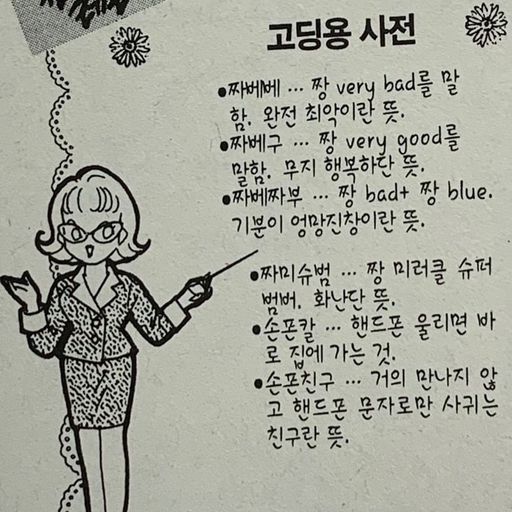 고딩용 사전
●짜베베 … 짱 very bad를 말
함. 완전 최악이란 뜻.
●짜베구 … 짱 very good를
말함. 무지 행복하단 뜻.
●짜베짜부 … 짱 bad+ 짱 blue.
기분이 엉망진창이란 뜻.
●짜미슈범 … 짱 미러클 슈퍼
범버. 화난단 뜻.
●손폰칼 … 핸드폰 울리면 바
로 집에 가는 것.
●손폰친구 … 거의 만나지 않
고 핸드폰 문자로만 사귀는
친구란 뜻.